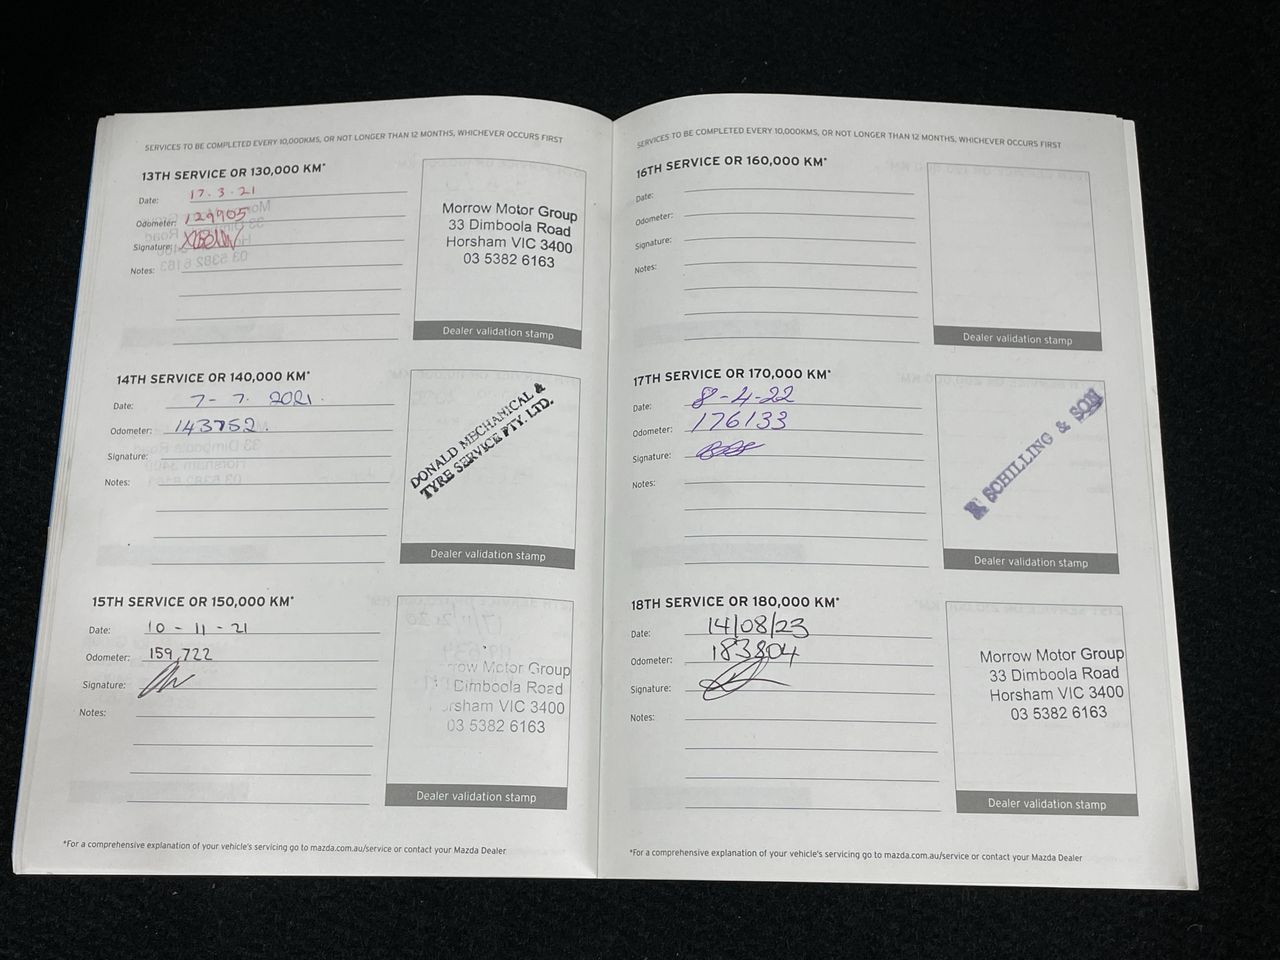 SERVICES TO BE COMPLETED EVERY 10,000KMS, OR NOT LONGER THAN 12 MONTHS, WHICHEVER OCCURS FIRST
13TH SERVICE OR 130,000 KM*
Date: 17.3.21
Odometer: 129905
Signature:
Notes:
Morrow Motor Group
33 Dimboola Road
Horsham VIC 3400
03 5382 6163
Dealer validation stamp
14TH SERVICE OR 140,000 KM*
Date: 7-7. 2021.
Odometer: 143752.
Signature:
Notes:
DONALD MECHANICAL &
TYRE SERVICE PTY. LTD.
Dealer validation stamp
15TH SERVICE OR 150,000 KM*
Date: 10-11-21
Odometer: 159,722
Signature:
Notes:
Motor Group
Dimboola Road
VIC 3400
03 5382 6163
Dealer validation stamp
*For a comprehensive explanation of your vehicle's servicing go to mazda.com.au/service or contact your Mazda Dealer
SERVICES TO BE COMPLETED EVERY 10,000KMS, OR NOT LONGER THAN 12 MONTHS, WHICHEVER OCCURS FIRST
16TH SERVICE OR 160,000 KM*
Date:
Odometer:
Signature:
Notes:
Dealer validation stamp
17TH SERVICE OR 170,000 KM*
Date: 8-4-22
Odometer: 176133
Signature:
Notes:
SCHILLING & SON
Dealer validation stamp
18TH SERVICE OR 180,000 KM*
Date: 14/08/23
Odometer: 183804
Signature:
Notes:
Morrow Motor Group
33 Dimboola Road
Horsham VIC 3400
03 5382 6163
Dealer validation stamp
*For a comprehensive explanation of your vehicle's servicing go to mazda.com.au/service or contact your Mazda Dealer